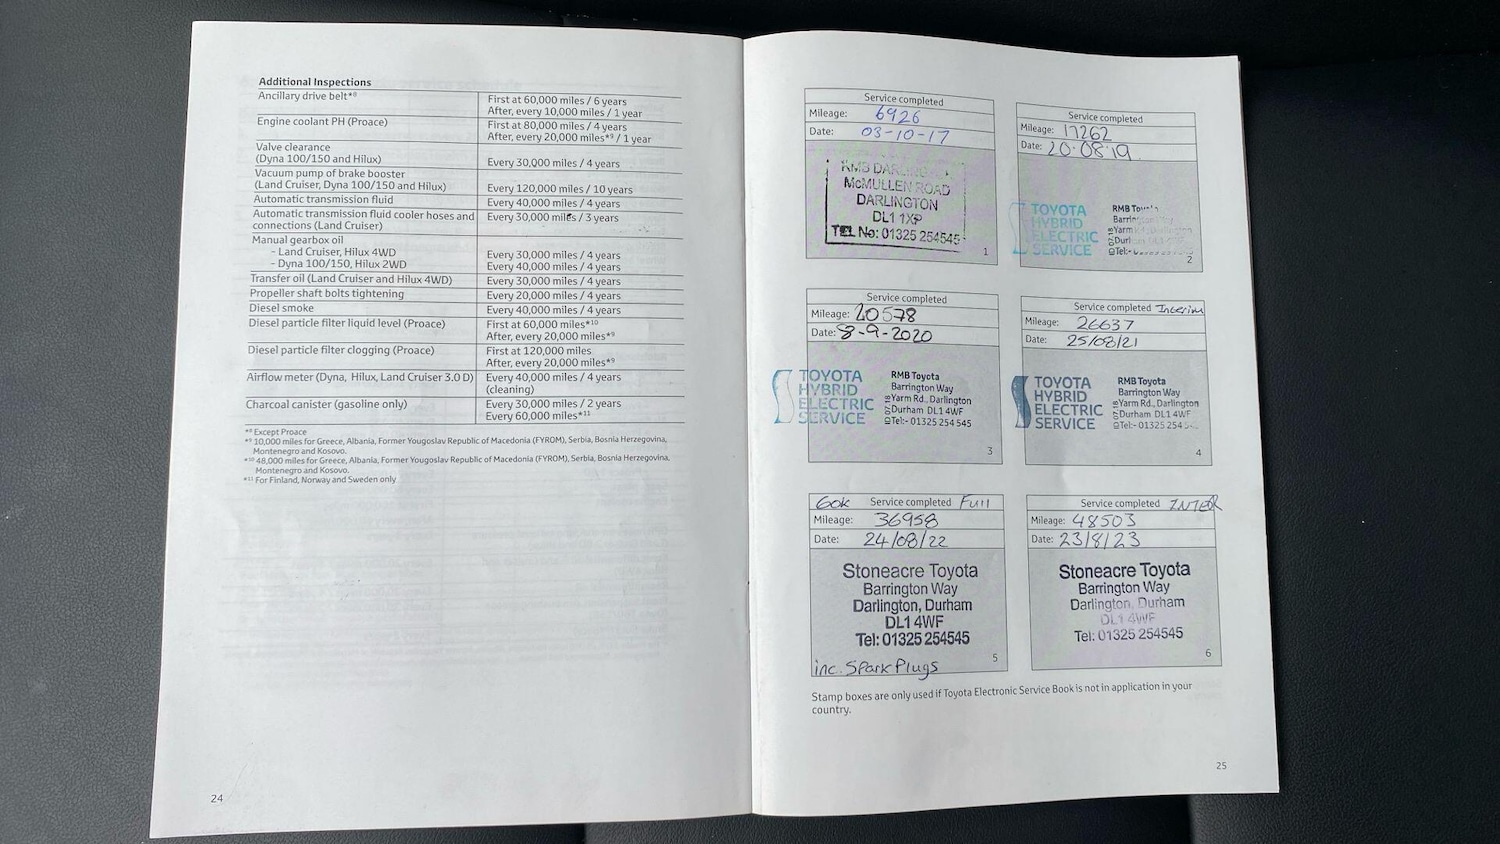 Additional Inspections
Ancillary drive belt*8 First at 60,000 miles / 6 years
After, every 10,000 miles / 1 year
Engine coolant PH (Proace) First at 80,000 miles / 4 years
After, every 20,000 miles*9 / 1 year
Valve clearance
(Dyna 100/150 and Hilux) Every 30,000 miles / 4 years
Vacuum pump of brake booster
(Land Cruiser, Dyna 100/150 and Hilux) Every 120,000 miles / 10 years
Automatic transmission fluid Every 40,000 miles / 4 years
Automatic transmission fluid cooler hoses and Every 30,000 miles / 3 years
connections (Land Cruiser)
Manual gearbox oil
- Land Cruiser, Hilux 4WD Every 30,000 miles / 4 years
- Dyna 100/150, Hilux 2WD Every 40,000 miles / 4 years
Transfer oil (Land Cruiser and Hilux 4WD) Every 30,000 miles / 4 years
Propeller shaft bolts tightening Every 20,000 miles / 4 years
Diesel smoke Every 40,000 miles / 4 years
Diesel particle filter liquid level (Proace) First at 60,000 miles*10
After, every 20,000 miles*9
Diesel particle filter clogging (Proace) First at 120,000 miles
After, every 20,000 miles*9
Airflow meter (Dyna, Hilux, Land Cruiser 3.0 D) Every 40,000 miles / 4 years
(cleaning)
Charcoal canister (gasoline only) Every 30,000 miles / 2 years
Every 60,000 miles*11
*8 Except Proace
*9 10,000 miles for Greece, Albania, Former Yougoslav Republic of Macedonia (FYROM), Serbia, Bosnia Herzegovina,
Montenegro and Kosovo.
*10 48,000 miles for Greece, Albania, Former Yougoslav Republic of Macedonia (FYROM), Serbia, Bosnia Herzegovina,
Montenegro and Kosovo.
*11 For Finland, Norway and Sweden only
24
Service completed
Mileage: 6926
Date: 03-10-17
RMB DARLINGTON
McMULLEN ROAD
DARLINGTON
DL1 1XP
TEL No: 01325 254545
1
Service completed
Mileage: 17262
Date: 20.08.19
TOYOTA
HYBRID
ELECTRIC
SERVICE
RMB Toyota
Barrington
Yarm
Durham
Tel:-
2
Service completed
Mileage: 20578
Date: 8-9-2020
TOYOTA
HYBRID
ELECTRIC
SERVICE
RMB Toyota
Barrington Way
Yarm Rd., Darlington
Durham DL1 4WF
Tel:- 01325 254 545
3
Service completed Interim
Mileage: 26637
Date: 25/08/21
TOYOTA
HYBRID
ELECTRIC
SERVICE
RMB Toyota
Barrington Way
Yarm Rd., Darlington
Durham DL1 4WF
Tel:- 01325 254
4
60K Service completed Full
Mileage: 36958
Date: 24/08/22
Stoneacre Toyota
Barrington Way
Darlington, Durham
DL1 4WF
Tel: 01325 254545
inc. Spark Plugs
5
Service completed INTER
Mileage: 48503
Date: 23/8/23
Stoneacre Toyota
Barrington Way
Darlington, Durham
DL1 4WF
Tel: 01325 254545
6
Stamp boxes are only used if Toyota Electronic Service Book is not in application in your
country.
25